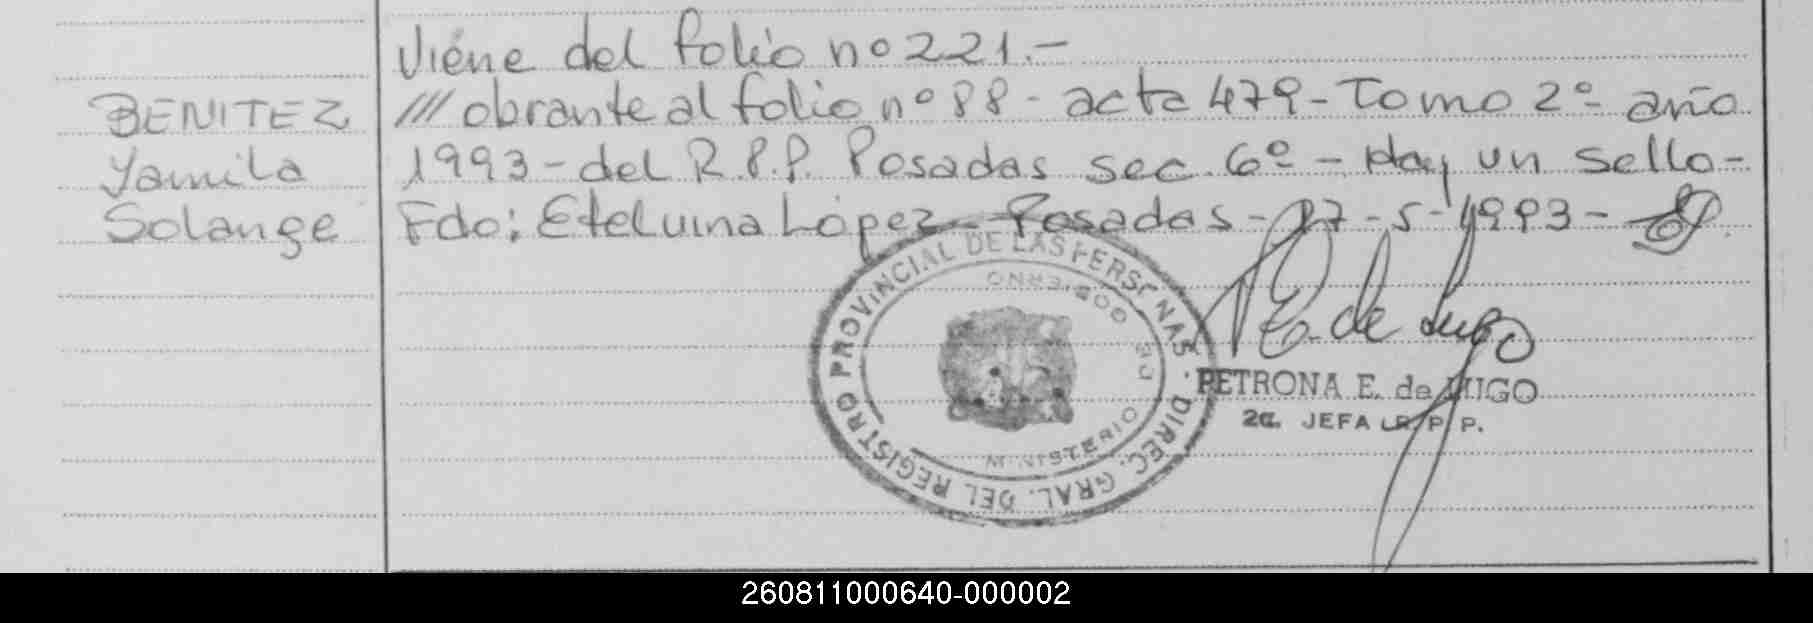 Viene del folio nº 221.-
BENITEZ
Yamila
Solange
/// obrante al folio nº 88 - acta 479 - Tomo 2º - año
1993 - del R.P.P. Posadas sec. 6º - Hay un sello -
Fdo: Eteluina López - Posadas - 27 - 5 - 1993 -
REGISTRO PROVINCIAL DE LAS PERSONAS · DIREC. GRAL. DEL
MINISTERIO DE GOBIERNO
P. E. de Lugo
PETRONA E. de LUGO
2a. JEFA R. P. P.
260811000640-000002